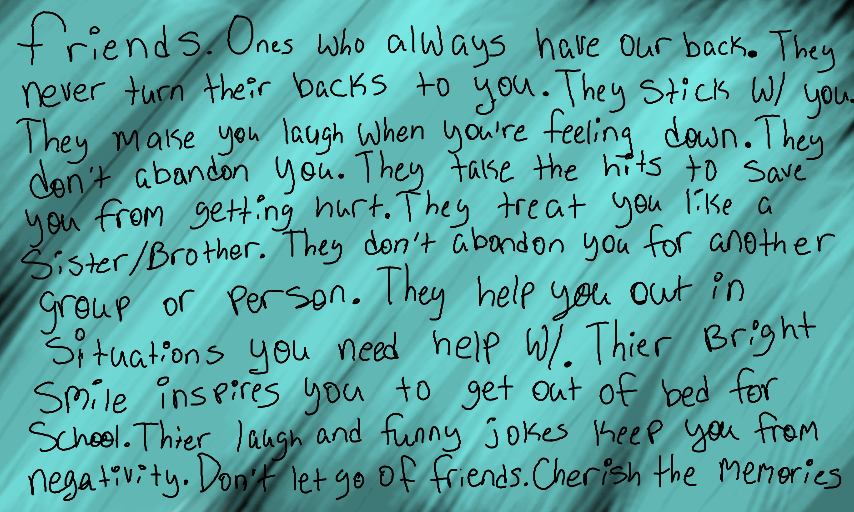 friends. Ones who always have our back. They
never turn their backs to you. They stick w/ you.
They make you laugh when you're feeling down. They
don't abandon you. They take the hits to save
you from getting hurt. They treat you like a
Sister/Brother. They don't abandon you for another
group or person. They help you out in
situations you need help w/. Thier Bright
smile inspires you to get out of bed for
School. Thier laugh and funny jokes keep you from
negativity. Don't let go of friends. Cherish the memories